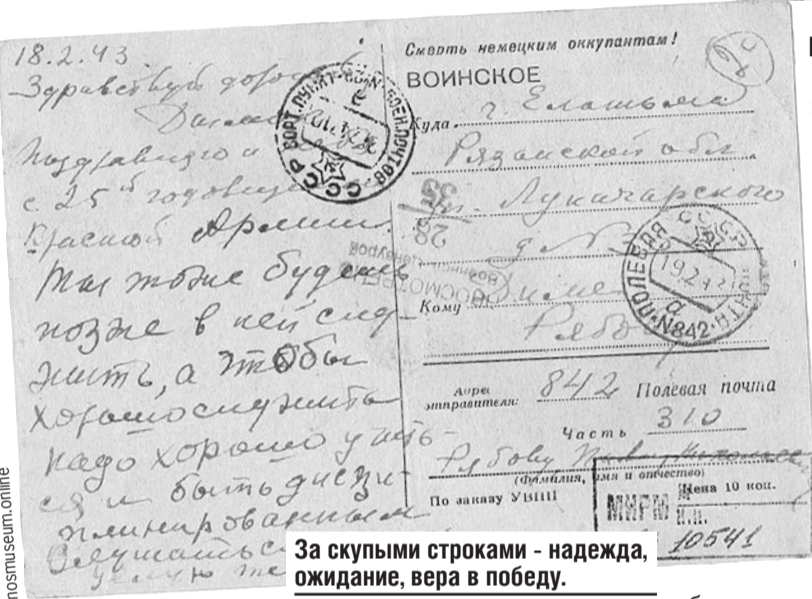 18.2.43
Здравствуй
Поздравляю
с 25й годовщ
Красной Армии.
Ты тоже будешь
позже в ней слу-
жить, а чтобы
хорошо служить
надо хорошо учить-
ся и быть дисци-
плинированным
Слушаться
целую
Смерть немецким оккупантам!
ВОИНСКОЕ
Куда.
г. Елатьма
Рязанской обл.
ул. Луначарского
д №
Кому
Диме
Рябо
Адрес отправителя:
842 Полевая почта
Часть 310
Рябову
(Фамилия, имя и отчество)
По заказу УВПП
Цена 10 коп.
МИРМ
10541
СССР
ПОЛЕВАЯ
СССР
19 2 43
N842
ПРОСМОТРЕНО
Военной Цензурой
nosmuseum.online
За скупыми строками - надежда,
ожидание, вера в победу.